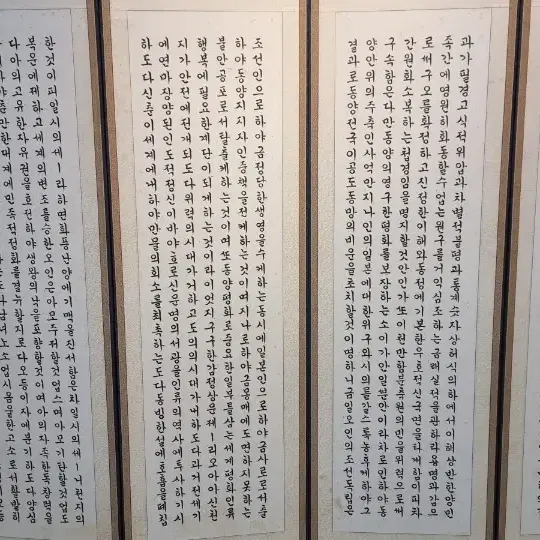 과가필경고식적위압과차별적불평과통계숫자상허식의하에서이해상반한양민
족간에영원히화동할수업는원구를거익심조하는금래실적을관하라용명과감으
로써구오를확정하고진정한이해와동정에기본한우호적신국면을타개함이피차
간원화소복하는첩경임을명지할것안인가또이천만함분축원의민을위력으로써
구속함은다만동양의영구한평화를보장하는소이가안일분만아라차로인하야동
양안위의주축인사억만지나인의일본에대한위구와시의를갈스록농후케하야그
결과로동양전국이공도동망의비운을초치할것이명하니금일오인의조선독립은
조선인으로하야금정당한생영을수케하는동시에일본인으로하야금사로로서출
하야동양지지자인중책을전케하는것이며지나로하야금몽매에도면하지못하는
불안공포로서탈출케하는것이며또동양평화로중요한일부를삼는세계평화인류
행복에필요한계단이되게하는것이라이엇지구구한감정상문제ㅣ리오아아신천
지가안전에전개되도다위력의시대가거하고도의의시대가내하도다과거전세기
에연마장양된인도적정신이바야흐로신문명의서광을인류의역사에투사하기시
하도다신춘이세계에내하야만물의회소를최촉하는도다동빙한설에호흡을폐칩
한것이피일시의세ㅣ라하면화풍난양에기맥을진서함은차일시의세ㅣ니천지의
복운에제하고세계의변조를승한오인은아모주저할것업스며아모기탄할것업도
다아의고유한자유권을호전하야생왕의낙을포향할것이며아의자족한독창력을
하야춘만한대계에민족적정화를결뉴할지로다오등이자에분기하도다양심
도다남녀노소업시음울한고소로서활발히